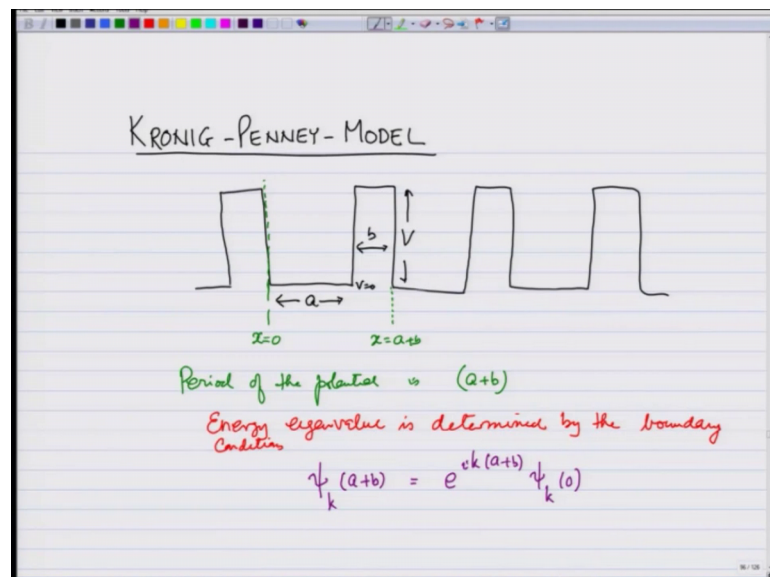 KRONIG-PENNEY-MODEL
b
V
V=0
← a →
x=0
x=a+b
Period of the potential is (a+b)
Energy eigenvalue is determined by the boundary
Conditions
ψ_k (a+b) = e^{ik(a+b)} ψ_k (0)
96 / 128